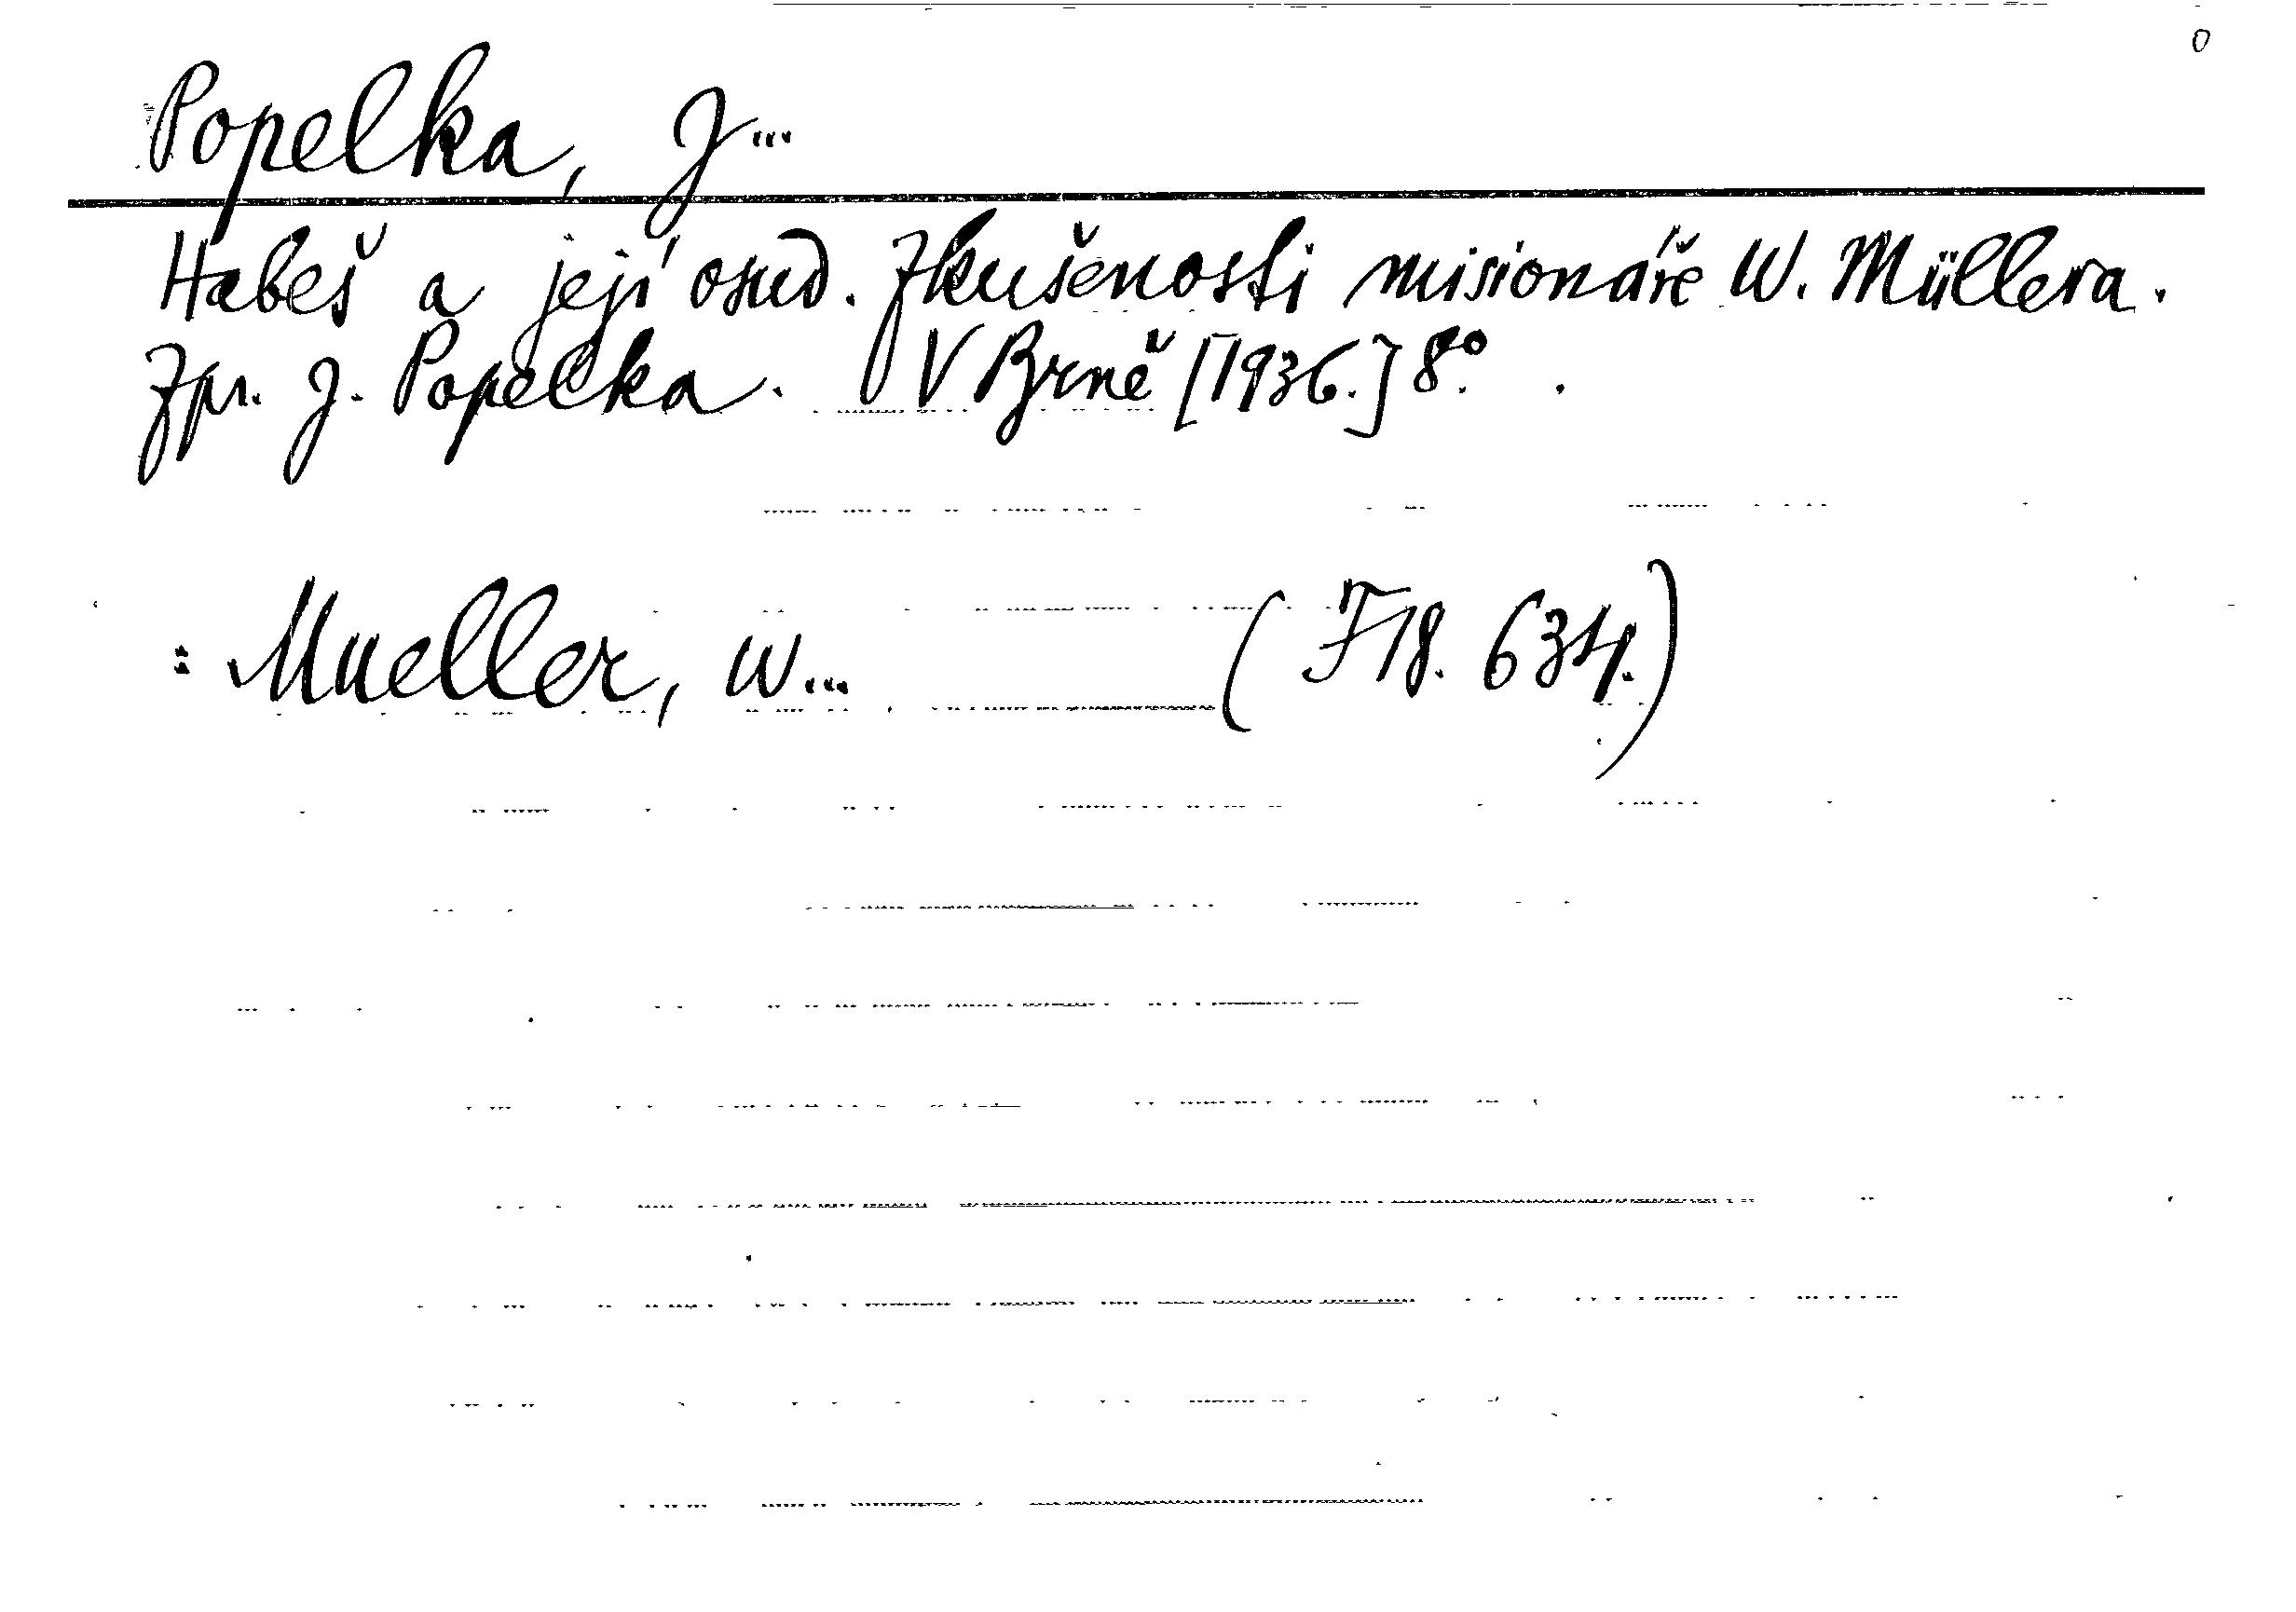 0
Popelka, J...
Habeš a její osud. Zkušenosti misionáře W. Müllera.
Zpr. J. Popelka. V Brně [1936.] 8°.
: Mueller, W... (F18. 634.)